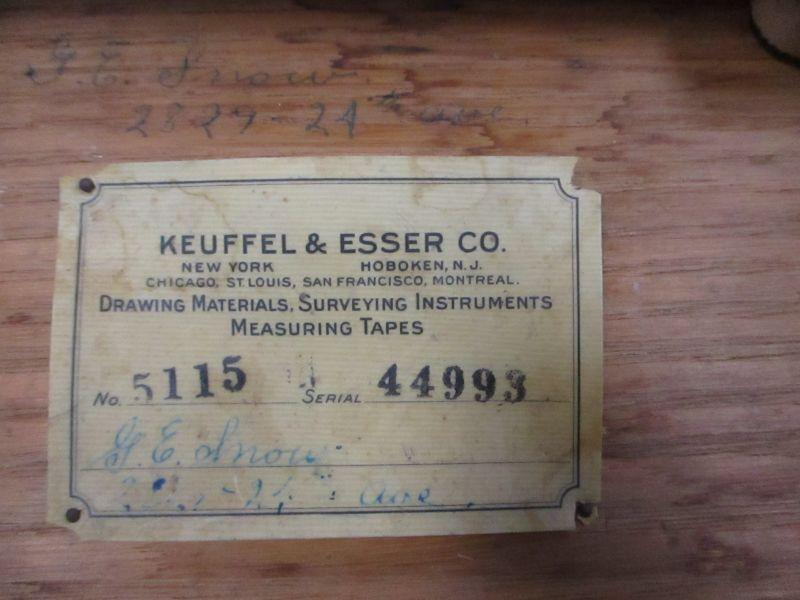 G. E. Snow.
2829-24th ave.
KEUFFEL & ESSER CO.
NEW YORK HOBOKEN, N.J.
CHICAGO, ST. LOUIS, SAN FRANCISCO, MONTREAL.
DRAWING MATERIALS, SURVEYING INSTRUMENTS
MEASURING TAPES
No. 5115 SERIAL 44993
G. E. Snow.
ave.